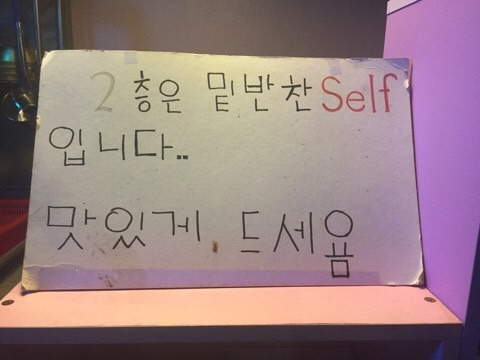 2층은 밑반찬Self
입니다..
맛있게 드세욤